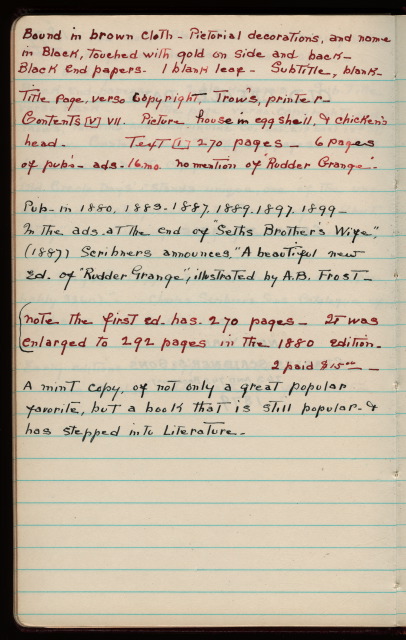 Bound in brown cloth - Pictorial decorations, and name
in Black, touched with gold on side and back -
Black End papers. 1 blank leaf - Subtitle, blank -
Title Page, verso Copyright, Trow's, printer -
Contents [V] VII. Picture house in eggshell, & chicken's
head. Text [1] 270 pages - 6 pages
of pub's - ads. 16.mo. no mention of "Rudder Grange".
Pub- in 1880, 1883. 1887. 1889. 1897. 1899 -
In the ads. at the end of "Seth's Brother's Wife",
(1887) Scribners announces, "A beautiful new
Ed. of "Rudder Grange", illustrated by A.B. Frost -
(note the first ed. has. 270 pages - It was
enlarged to 292 pages in the 1880 edition.
I paid $15.00 -
A mint copy, of not only a great popular
favorite, but a book that is still popular - &
has stepped into Literature -